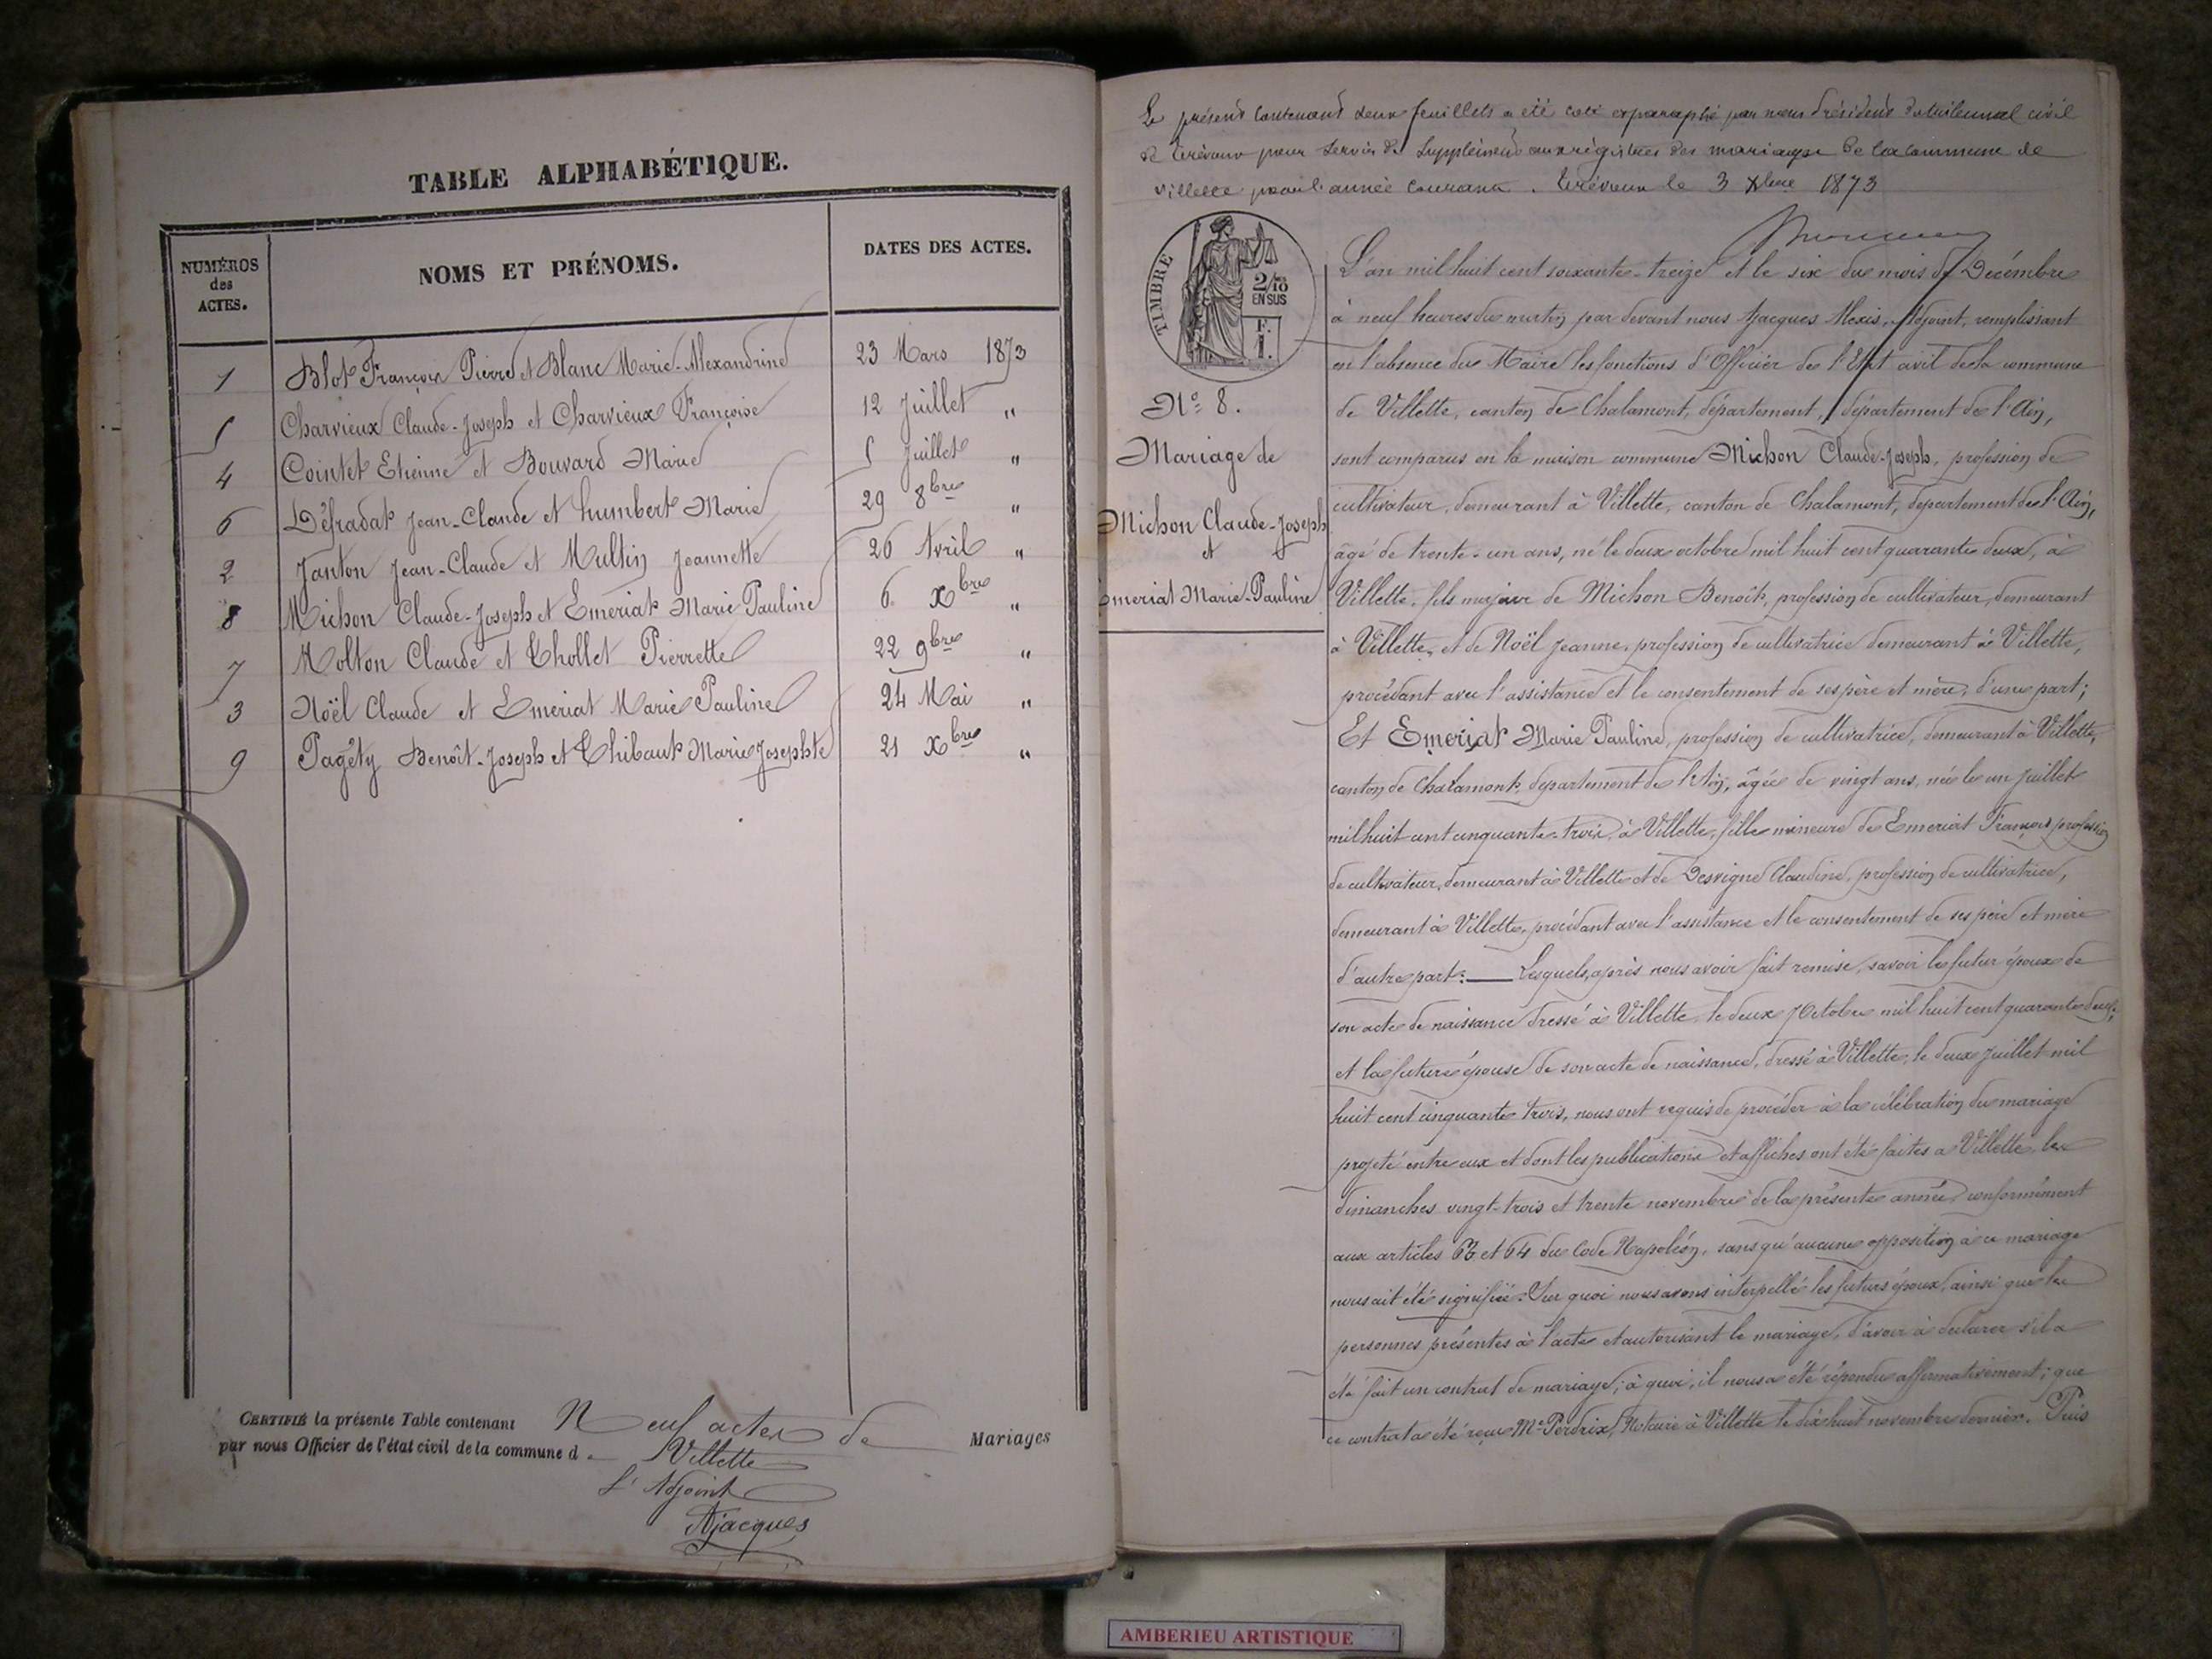 TABLE ALPHABÉTIQUE.
NUMÉROS des ACTES. NOMS ET PRÉNOMS. DATES DES ACTES.
1 Blot François Pierre et Blanc Marie-Alexandrine 23 Mars 1873
5 Charvieux Claude-Joseph et Charvieux Françoise 12 Juillet "
4 Cointet Etienne et Bouvard Marie 5 Juillet "
6 Défradat Jean-Claude et humbert Marie 29 8bre "
2 Janton Jean-Claude et Multin Jeannette 26 Avril "
8 Michon Claude-Joseph et Emeriat Marie Pauline 6 Xbre "
7 Molton Claude et Thollet Pierrette 22 9bre "
3 Noël Claude et Emeriat Marie Pauline 24 Mai "
9 Pagéty Benoît-Joseph et Thibaut Marie Josephte 21 Xbre "
CERTIFIÉ la présente Table contenant Neuf actes de Mariages
par nous Officier de l'état civil de la commune d Villette
L'Adjoint
Ajacques
Le présent contenant deux feuillets a été coté et paraphé par nous Président du tribunal civil
de Trévoux pour servir de Supplément aux régistres des mariages de la commune de
Villette pour l'année courante. Trévoux le 3 Xbre 1873
TIMBRE
2/10 EN SUS
F. 1.
No. 8.
Mariage de
Michon Claude-Joseph
et
Emeriat Marie-Pauline
L'an mil huit cent soixante-treize et le six du mois de Décembre
à neuf heures du matin par devant nous Ajacques Alexis, Adjoint, remplissant
en l'absence du Maire les fonctions d'Officier de l'Etat civil de la commune
de Villette, canton de Chalamont, département, département de l'Ain,
sont comparus en la maison commune Michon Claude-Joseph, profession de
cultivateur, demeurant à Villette, canton de Chalamont, département de l'Ain,
âgé de trente-un ans, né le deux octobre mil huit cent quarante deux, à
Villette, fils majeur de Michon Benoît, profession de cultivateur, demeurant
à Villette, et de Noël Jeanne, profession de cultivatrice demeurant à Villette,
procédant avec l'assistance et le consentement de ses père et mère, d'une part;
Et Emeriat Marie Pauline, profession de cultivatrice, demeurant à Villette,
canton de Chalamont, département de l'Ain, âgée de vingt ans, née le un juillet
mil huit cent cinquante-trois, à Villette, fille mineure de Emeriat François profession
de cultivateur, demeurant à Villette et de Desvigne Claudine, profession de cultivatrice,
demeurant à Villette, procédant avec l'assistance et le consentement de ses père et mère
d'autre part. Lesquels, après nous avoir fait remise, savoir le futur époux de
son acte de naissance dressé à Villette, le deux Octobre mil huit cent quarante deux,
et la future épouse de son acte de naissance, dressé à Villette, le deux juillet mil
huit cent cinquante trois, nous ont requis de procéder à la célébration du mariage
projeté entre eux et dont les publications et affiches ont été faites à Villette, les
dimanches vingt-trois et trente novembre de la présente année, conformément
aux articles 63 et 64 du Code Napoléon, sans qu'aucune opposition à ce mariage
nous ait été signifiée. Sur quoi nous avons interpellé les futurs époux, ainsi que les
personnes présentes à l'acte et autorisant le mariage, d'avoir à déclarer s'il a
été fait un contrat de mariage; à quoi, il nous a été répondu affirmativement; que
ce contrat a été reçu Me Perdrix, Notaire à Villette le dix huit novembre dernier. Puis
AMBERIEU ARTISTIQUE